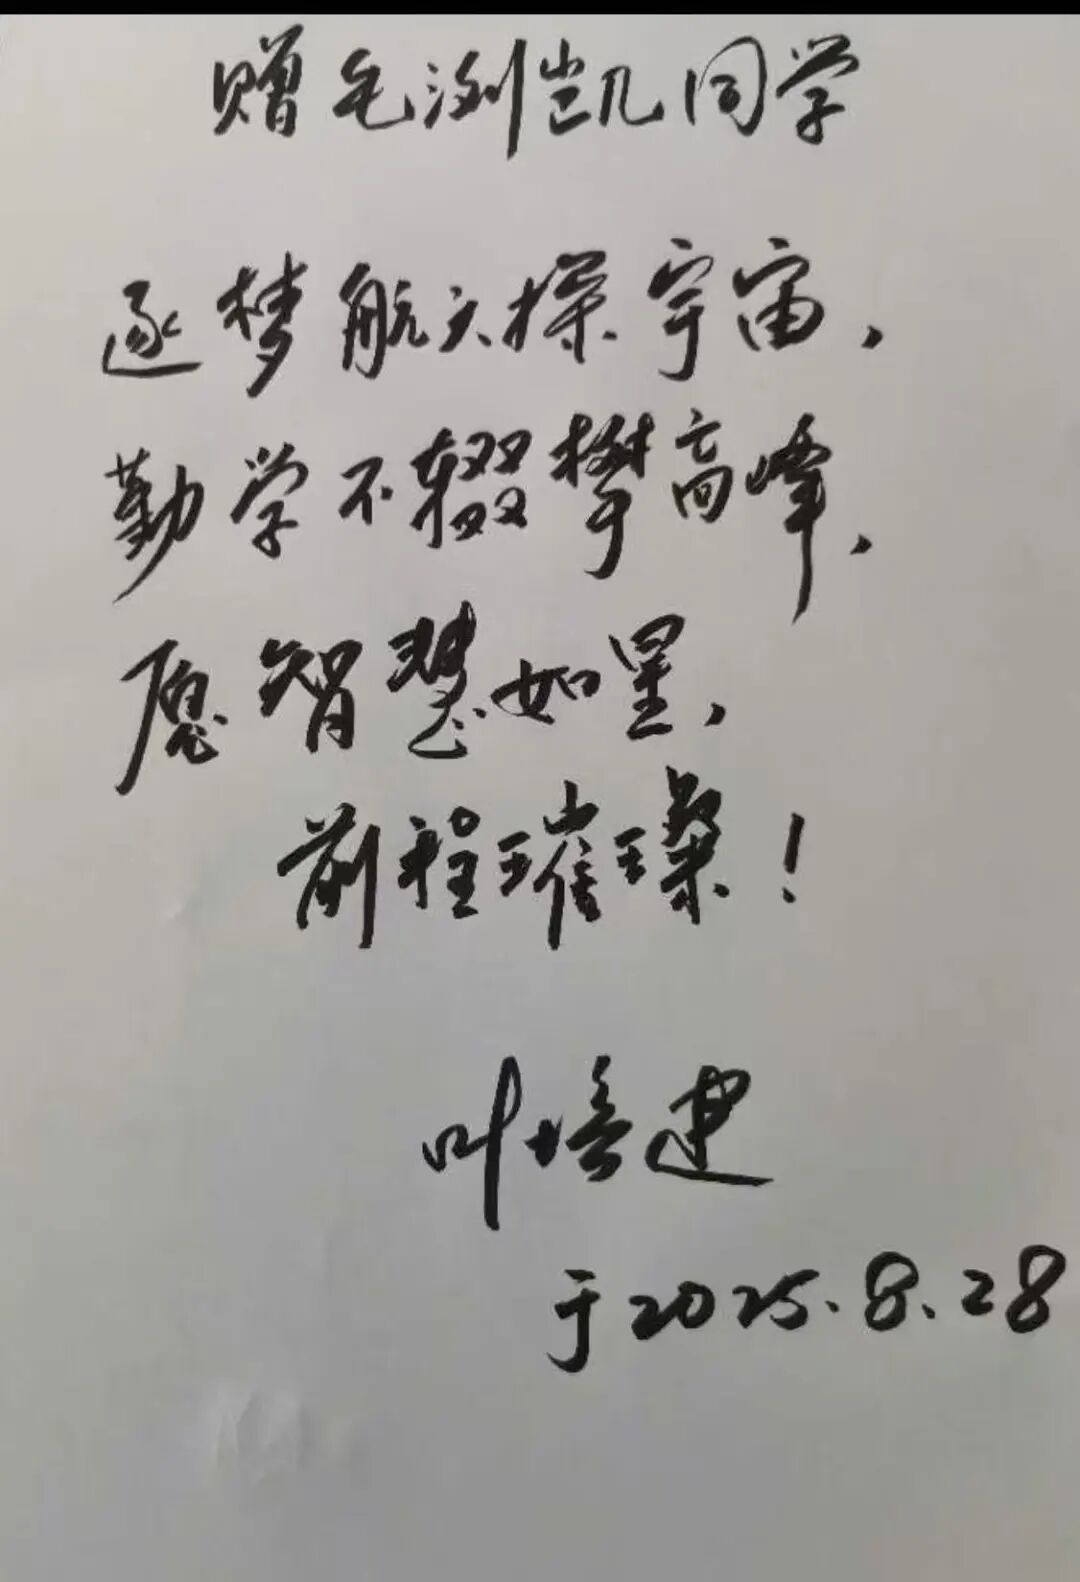 赠毛浏凯同学
逐梦航天探宇宙，
勤学不辍攀高峰，
愿智慧如星，
前程璀璨！
叶培建
于2025.8.28